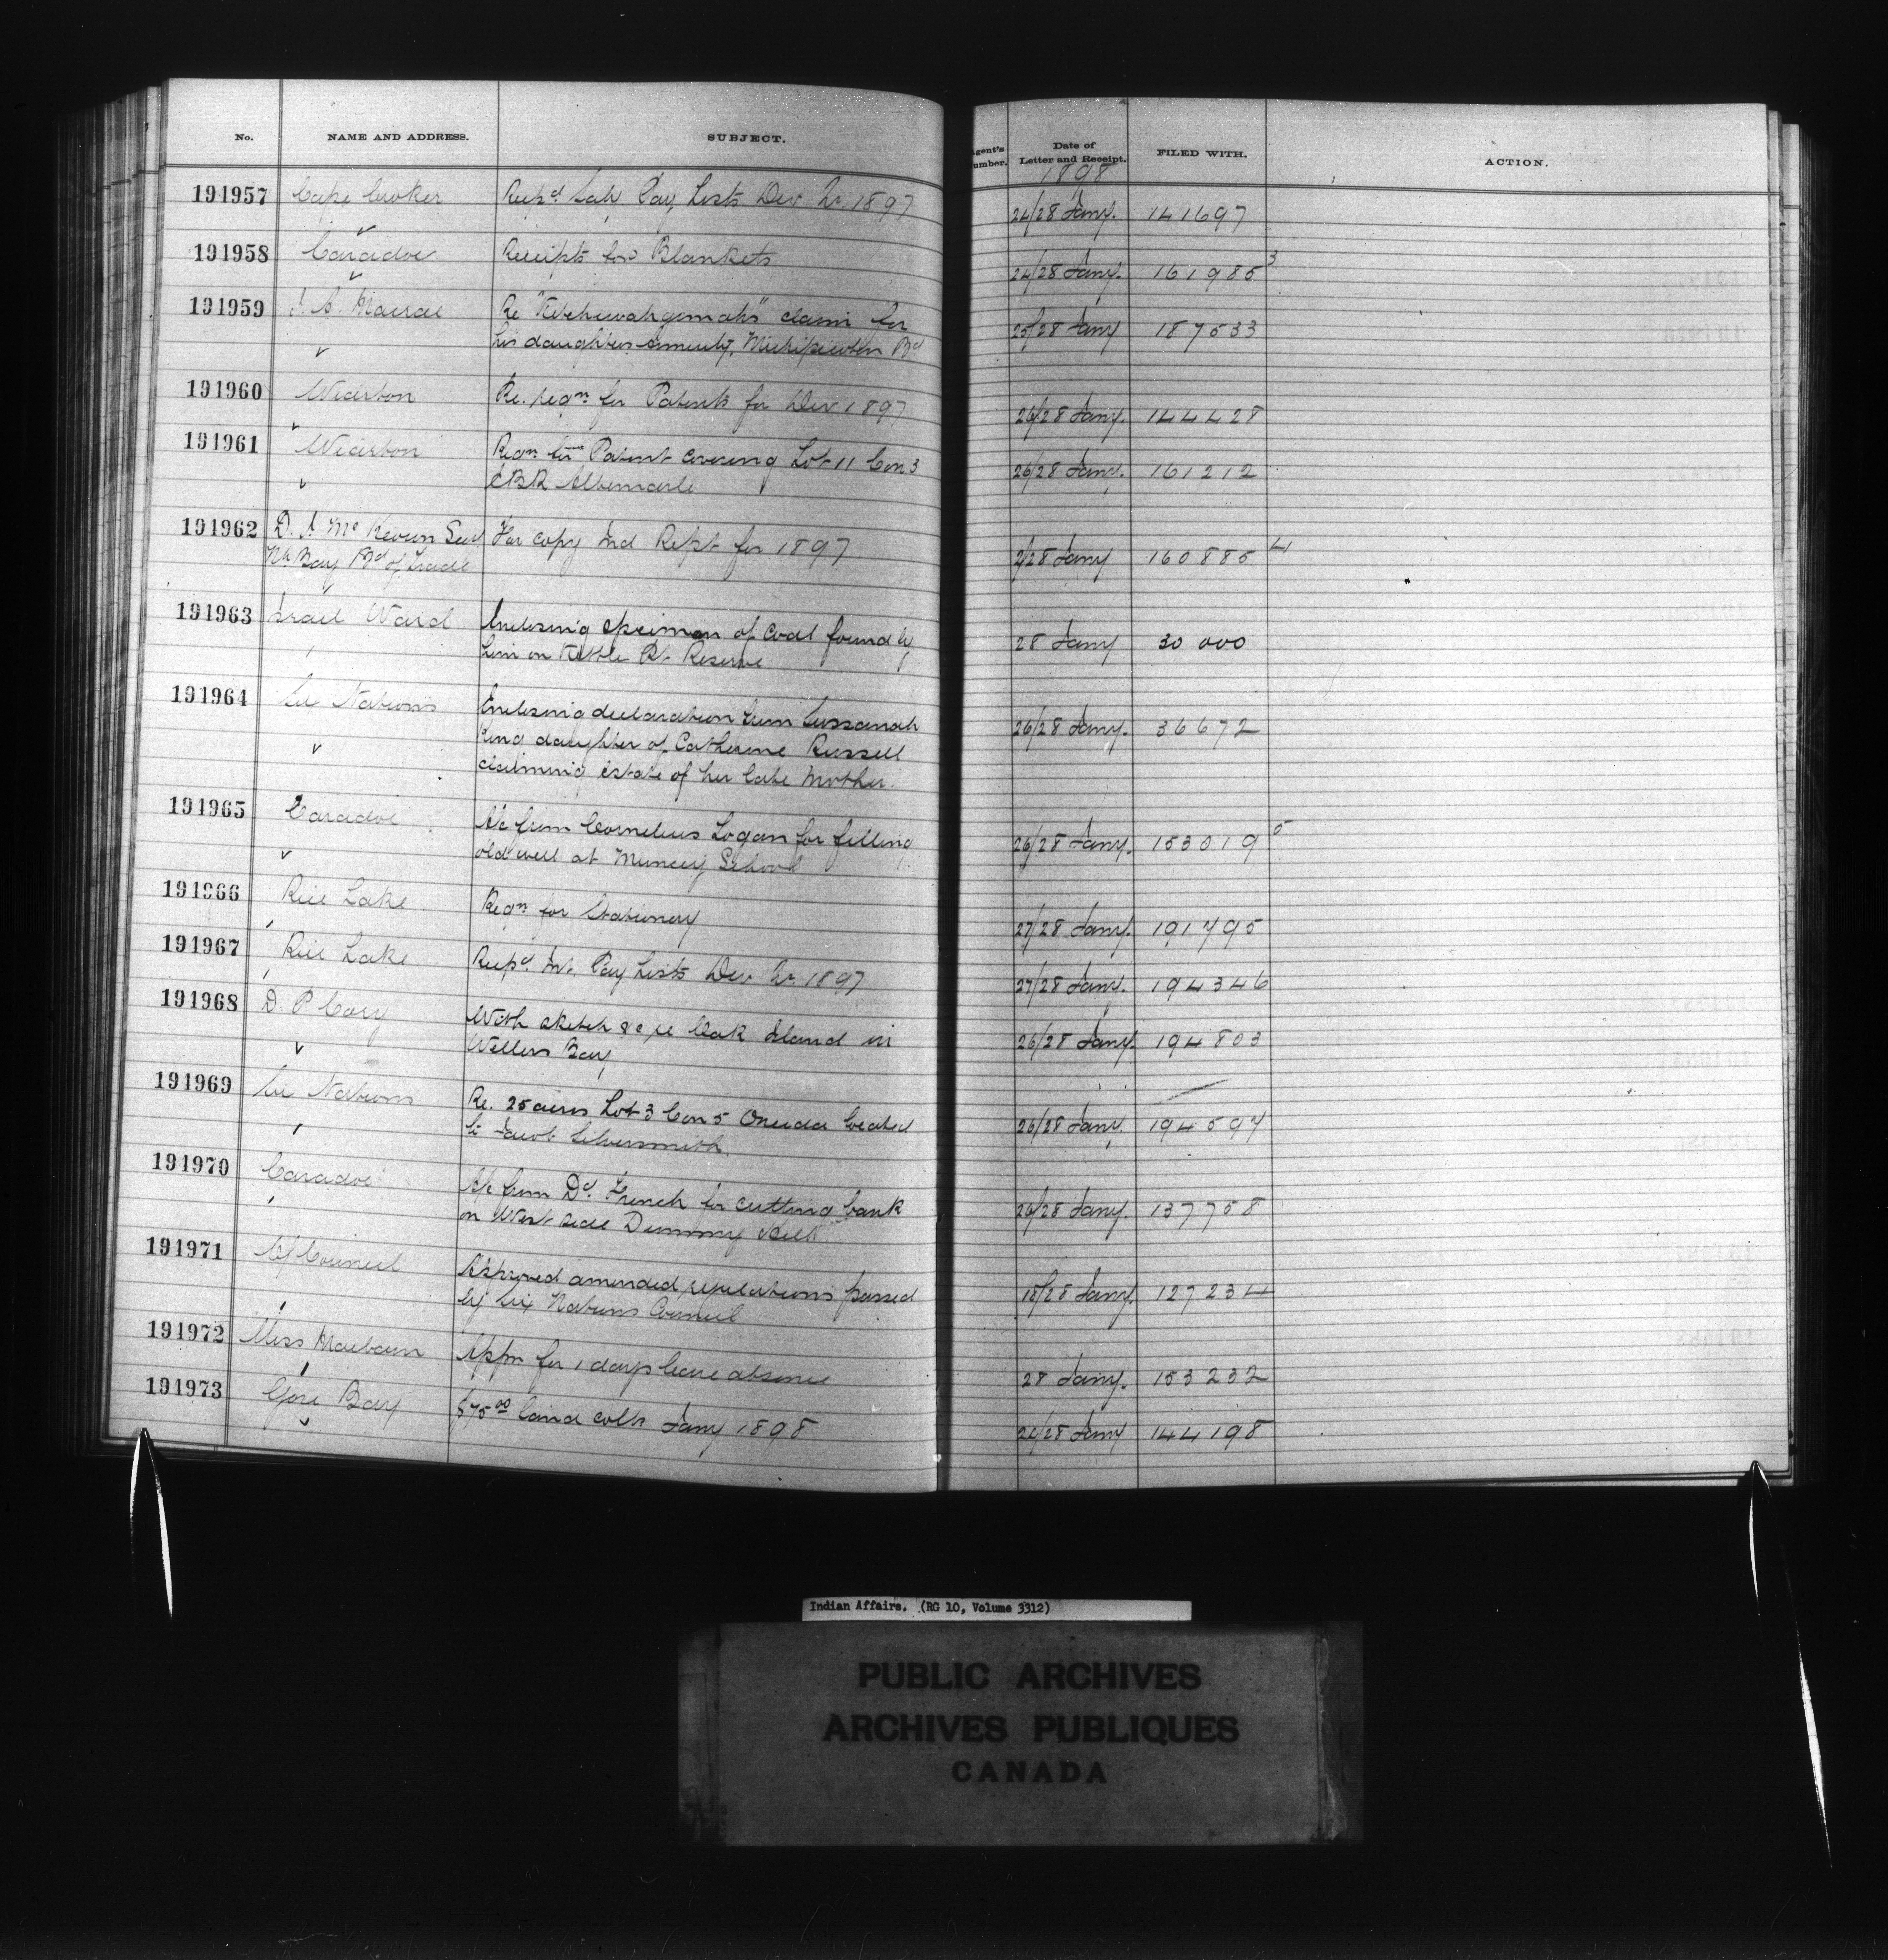 No. NAME AND ADDRESS. SUBJECT. Agent's Number. Date of Letter and Receipt. FILED WITH. ACTION.
1898
191957 Cape Croker Pay Lists Dec Qr 1897 24/28 Jany. 141697
191958 Caradoc Receipts for Blankets 24/28 Jany. 161985 3
191959 J. A. Macrae Re claim for 25/28 Jany 187533
his daughters annuity, Michipicoten Bd
191960 Wiarton Re. reqn for Patents for Dec 1897 26/28 Jany. 144428
191961 Wiarton Reqn for Patent covering Lot 11 Con 3 26/28 Jany. 161212
EBR Albemarle
191962 D. J. Mc Keown Secy For copy Ind Rept for 1897 2/28 Jany 160885 4
Nh Bay Bd of Trade
191963 Israel Ward Enclosing specimen of coal found by 28 Jany 30 000
him on Kettle Pt. Reserve
191964 Six Nations Enclosing declaration from Sussanah 26/28 Jany. 36672
King daughter of Catherine Russell
claiming estate of her late mother.
191965 Caradoc A/c from Cornelius Logan for filling 26/28 Jany. 153019 5
old well at Muncey School
191966 Rice Lake Reqn for Stationery 27/28 Jany. 191795
191967 Rice Lake Int. Pay Lists Dec Qr 1897 27/28 Jany. 194346
191968 D. P Cory With sketch &c re Oak Island in 26/28 Jany. 194803
Wellers Bay
191969 Six Nations Re. 25 acres Lot 3 Con 5 Oneida located 26/28 Jany. 194597
to Jacob Silversmith.
191970 Caradoc A/c from Dd. French for cutting bank 26/28 Jany. 137758
on West side Dummy Hill
191971 Council Approved amended regulations passed 18/28 Jany. 127234
by Six Nations Council
191972 Miss Appn for 1 days leave absence 28 Jany. 153232
191973 Gore Bay $75.00 Land colls Jany 1898 24/28 Jany 144198
Indian Affairs. (RG 10, Volume 3312)
PUBLIC ARCHIVES
ARCHIVES PUBLIQUES
CANADA